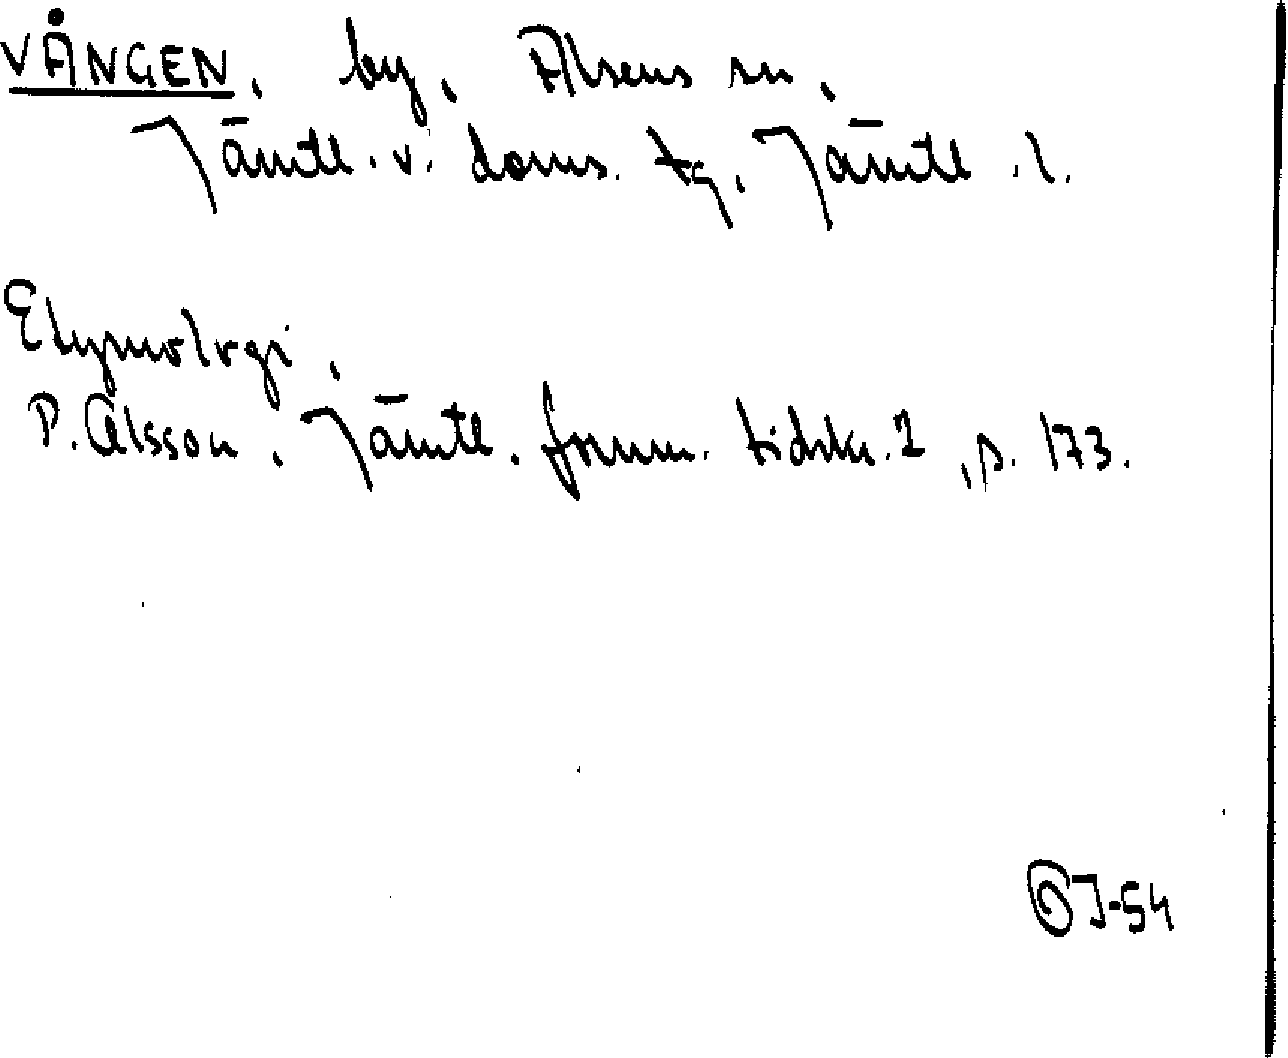 VÅNGEN, by, Alsens sn,
Jämtl. v. doms. tg, Jämtl. l.
Etymologi,
P. Olsson, Jämtl. fornm. tidskr. 2, s. 173.
J-54